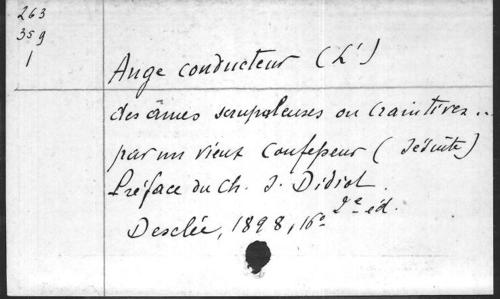 263
359
1
Ange conducteur (L')
des âmes scrupuleuses ou craintives...
par un vieux Confesseur (Jésuite)
Préface du Ch. J. Didiot.
Desclée, 1898, 16° 2e éd.